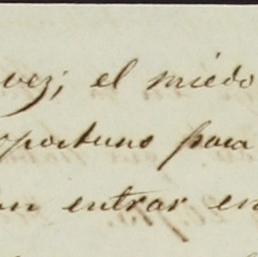 vez; el miedo
oportuno para
on entrar en